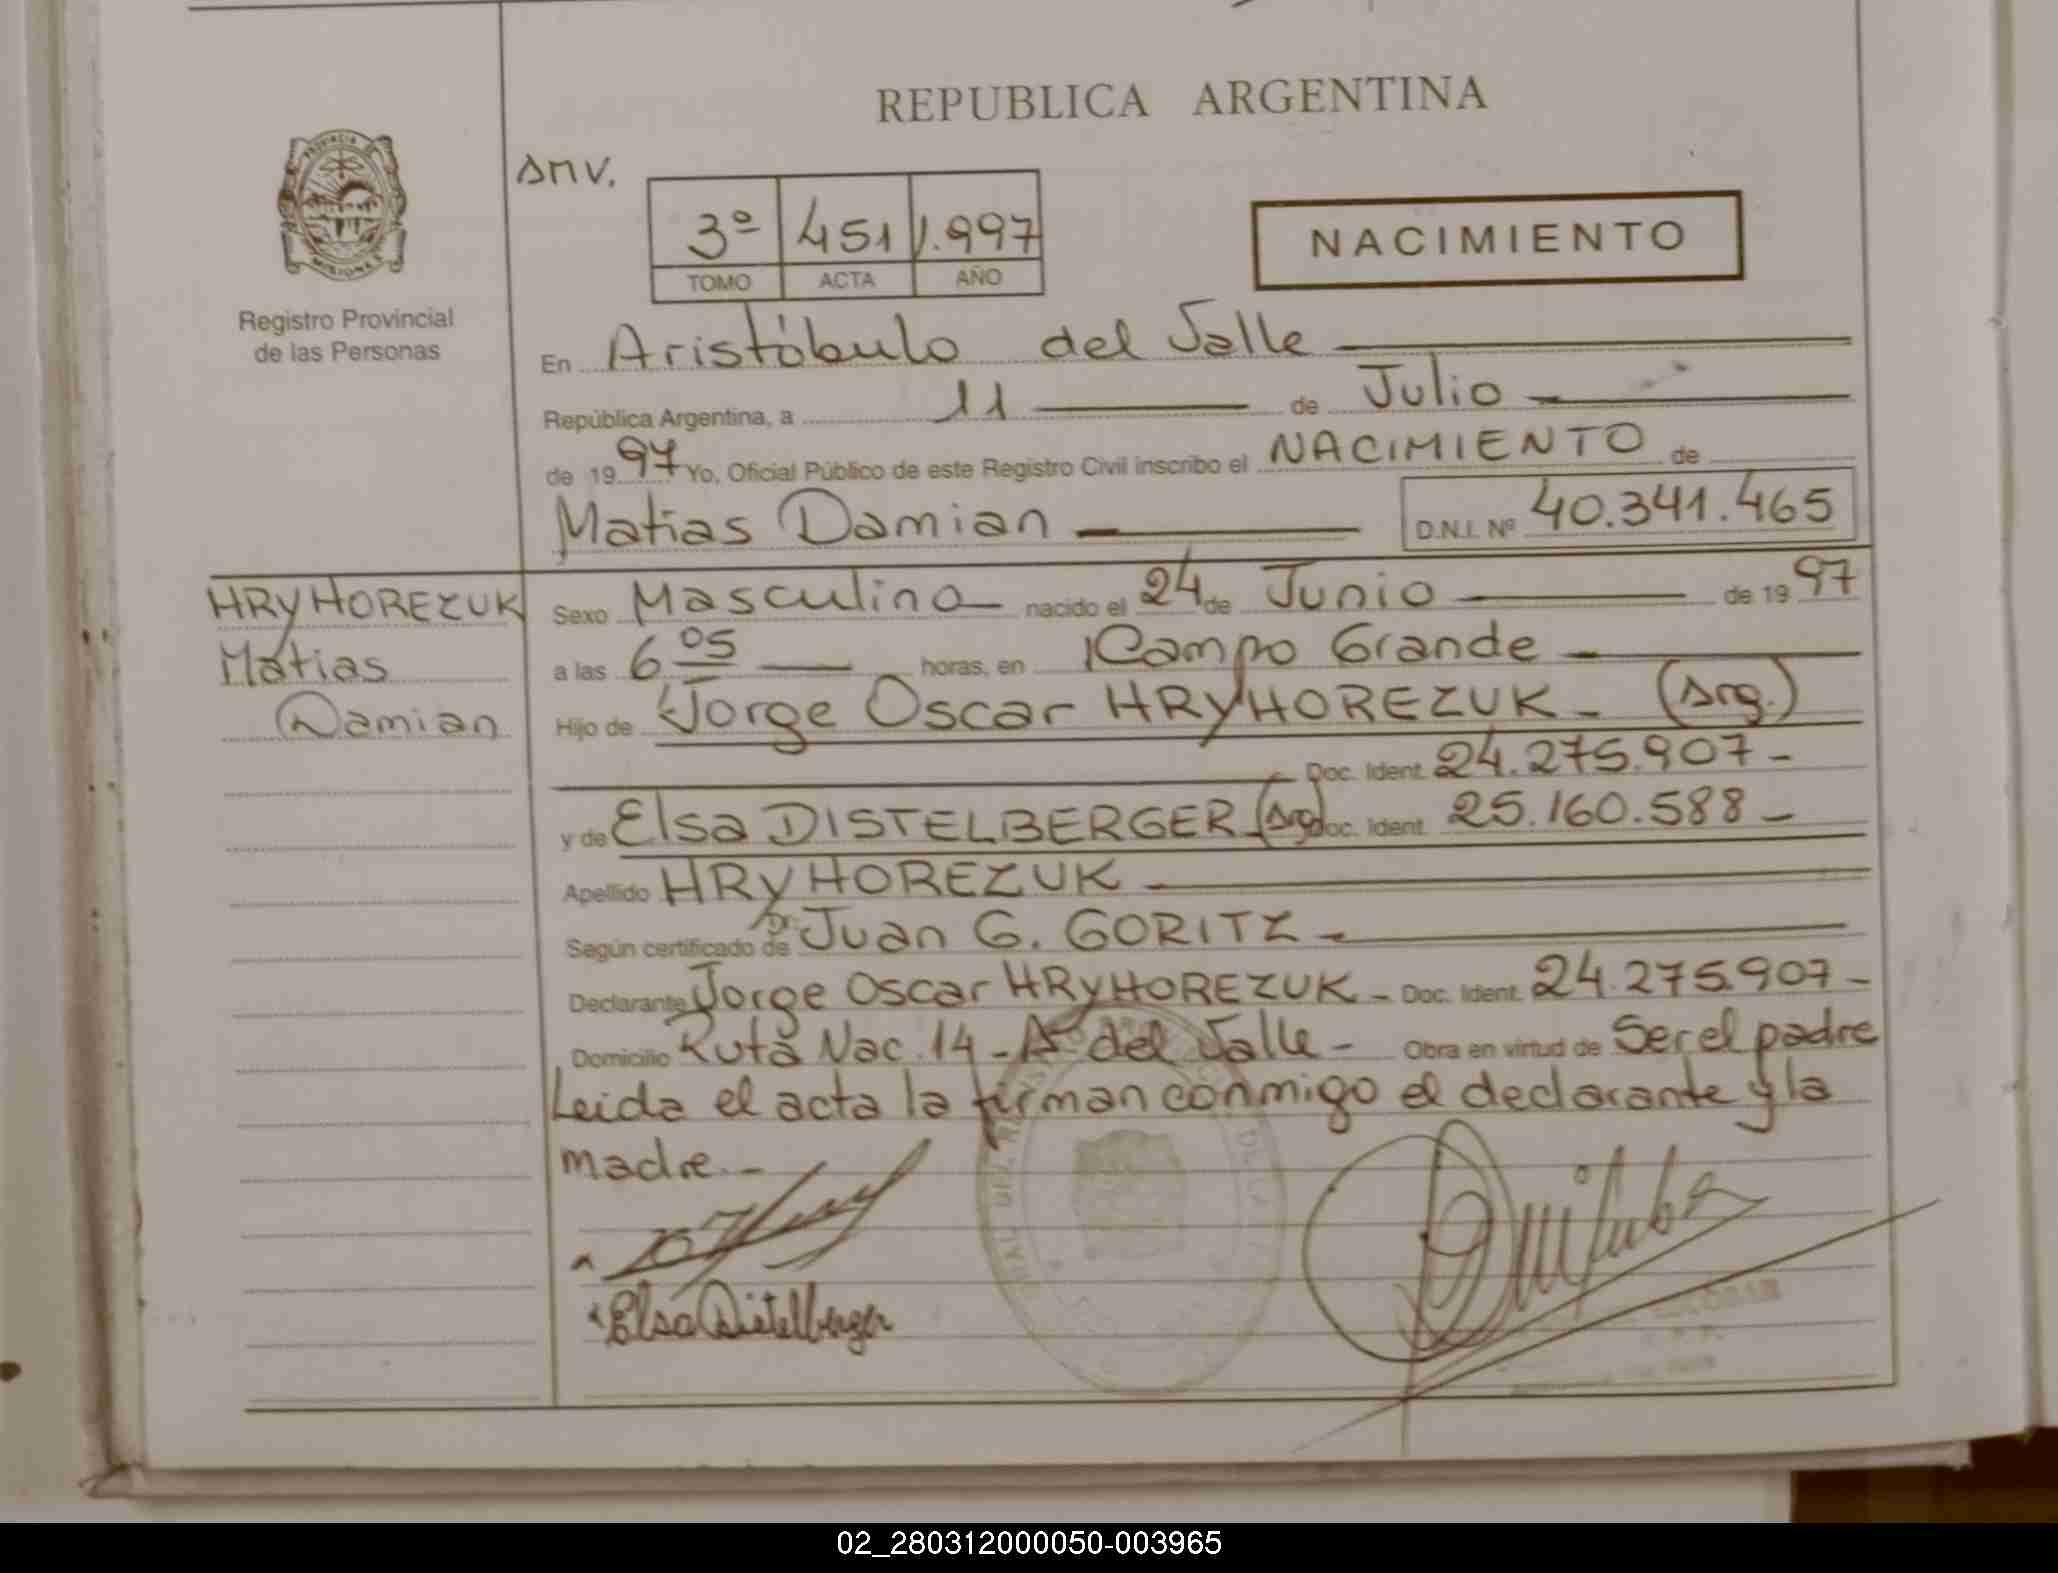 REPUBLICA ARGENTINA
PROVINCIA DE
MISIONES
Registro Provincial
de las Personas
Anv.
3º 451 1.997
TOMO ACTA AÑO
NACIMIENTO
En Aristóbulo del Valle
República Argentina, a 11 de Julio
de 1997 Yo, Oficial Público de este Registro Civil inscribo el NACIMIENTO de
Matias Damian D.N.I. Nº 40.341.465
HRYHOREZUK
Matias
Damian
Sexo Masculino nacido el 24 de Junio de 1997
a las 6 05 horas, en Campo Grande
Hijo de Jorge Oscar HRYHOREZUK - (Arg.)
Doc. Ident. 24.275.907-
y de Elsa DISTELBERGER-(Arg) Doc. Ident. 25.160.588-
Apellido HRYHOREZUK
Según certificado de Dr. Juan G. GORITZ
Declarante Jorge Oscar HRYHOREZUK - Doc. Ident. 24.275.907-
Domicilio Ruta Nac. 14 - Aº del Valle - Obra en virtud de Ser el padre
Leida el acta la firman conmigo el declarante y la
madre.-
Elsa Distelberger
02_280312000050-003965